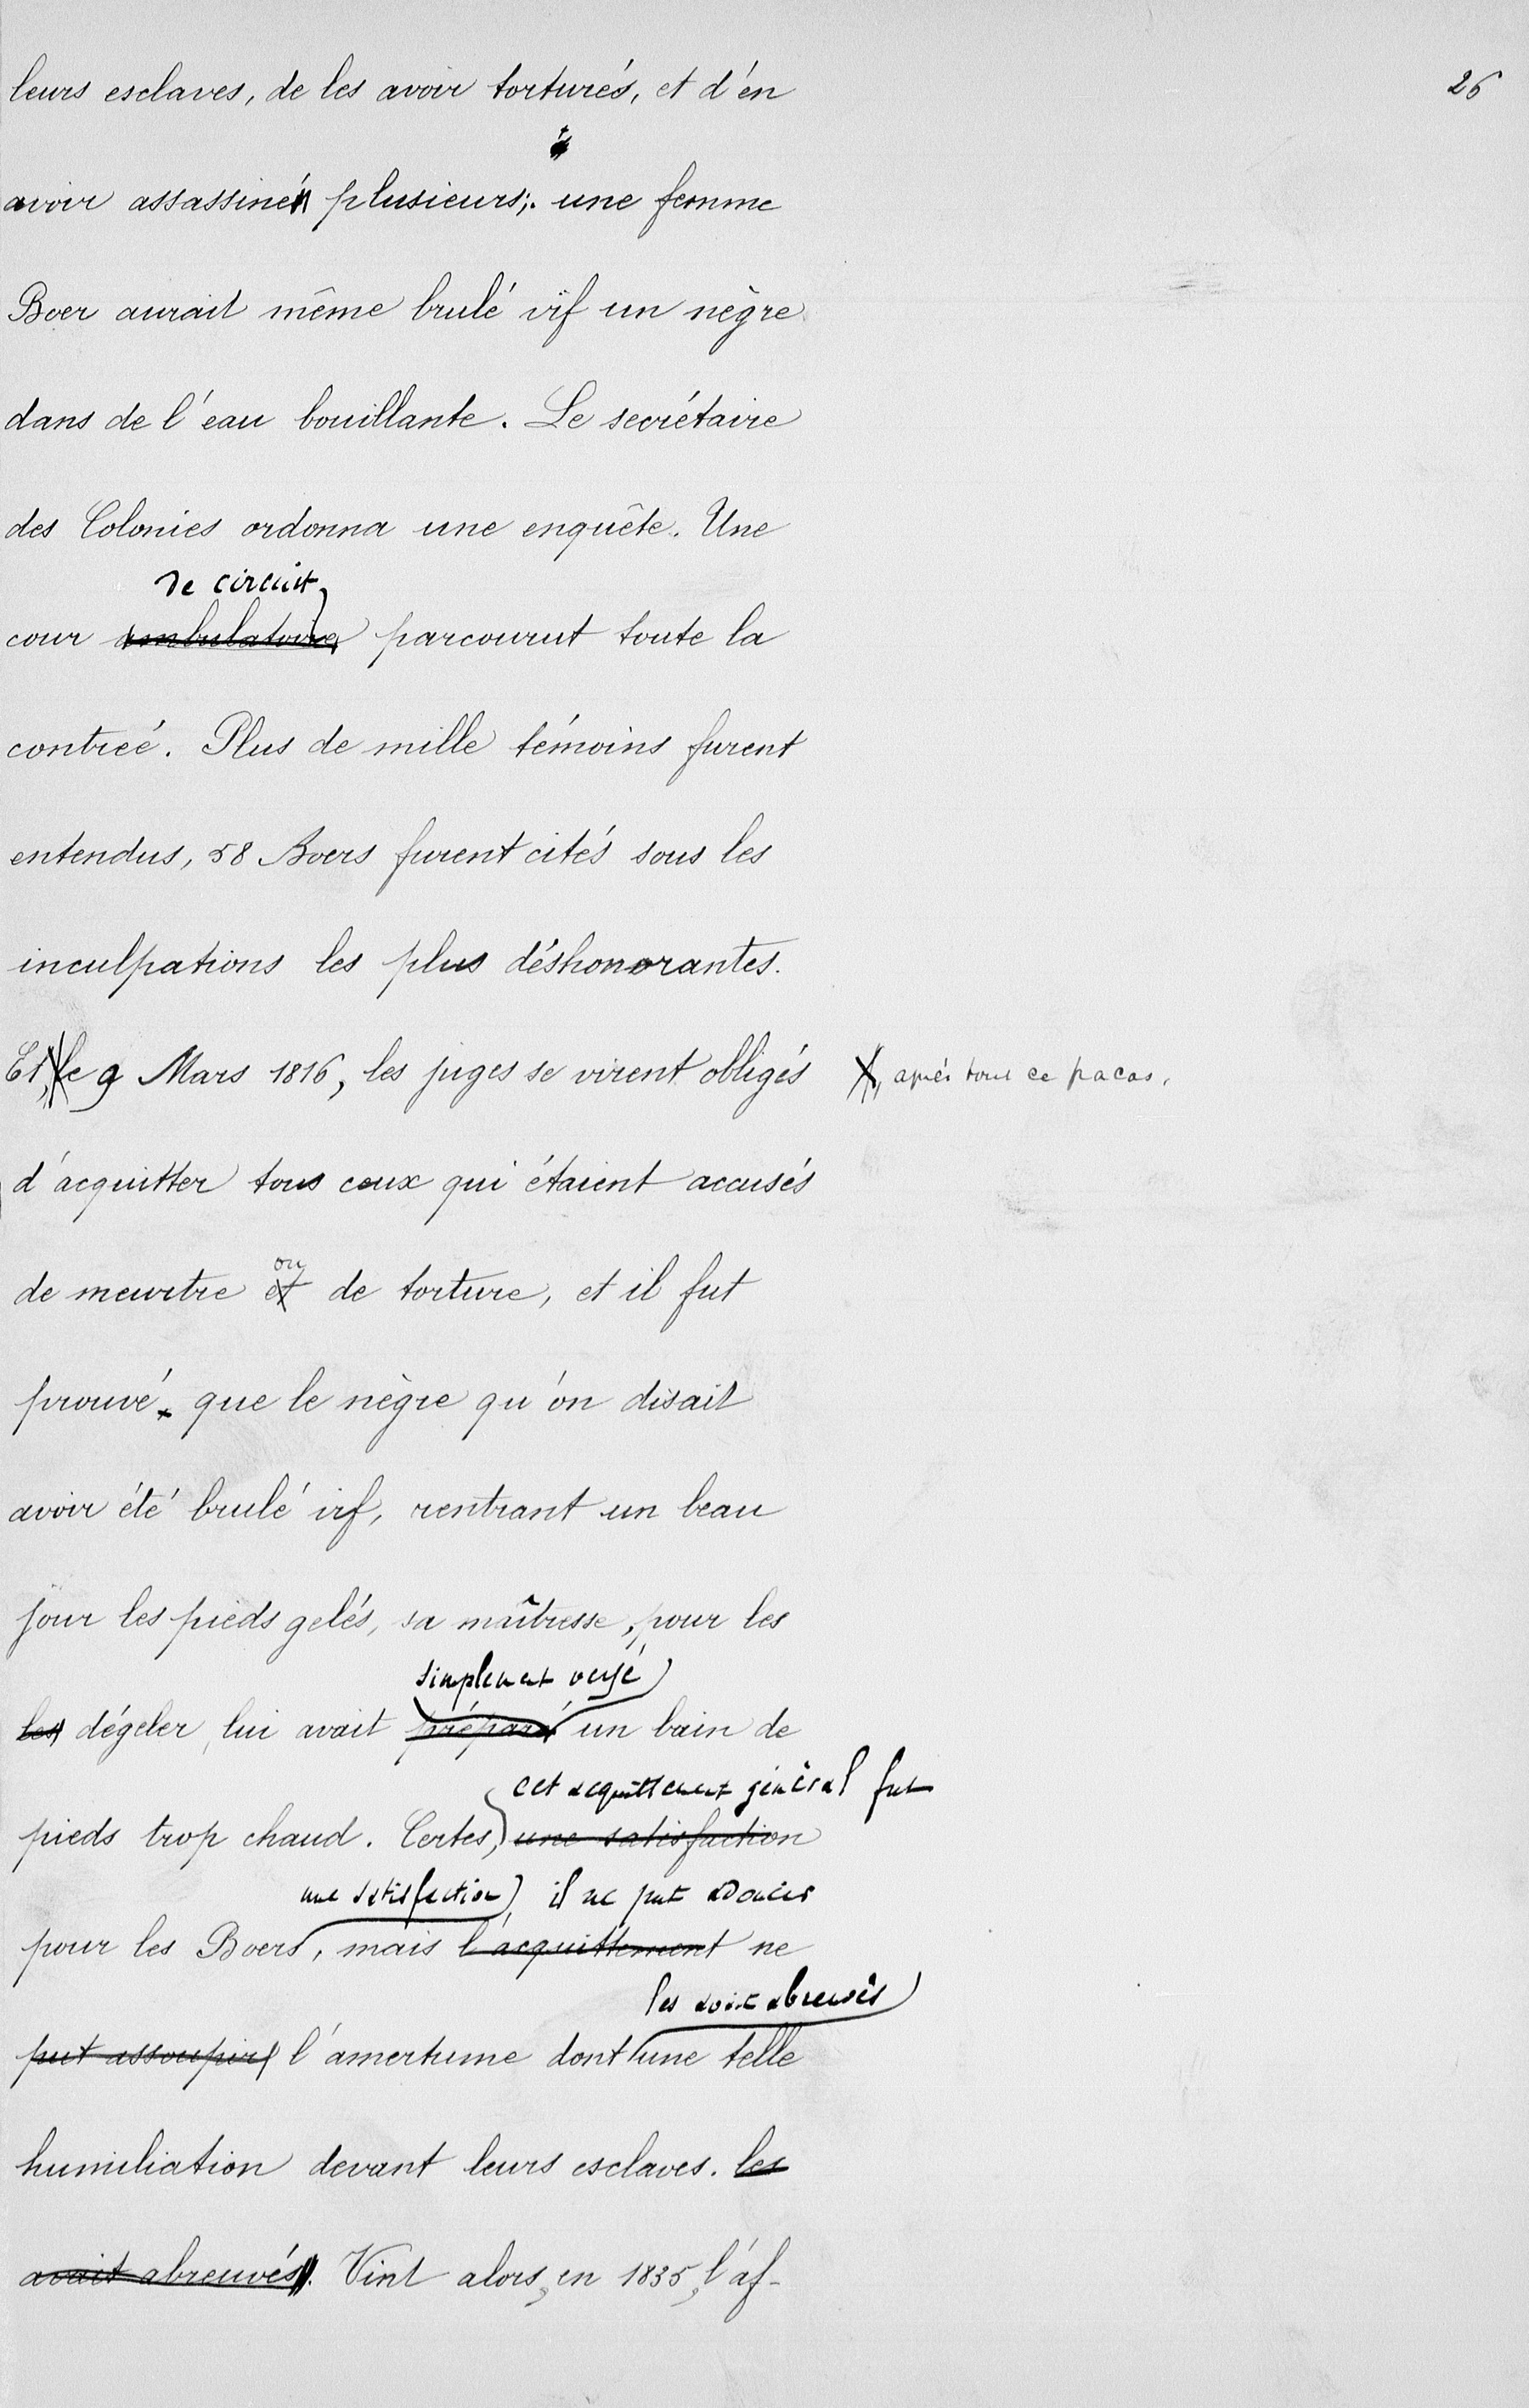 26
leurs esclaves, de les avoir torturés, et d'en
avoir assassiné plusieurs; une femme
Boer aurait même brulé vif un nègre
dans de l'eau bouillante. Le secrétaire
des Colonies ordonna une enquête. Une
de circuit
cour ambulatoire parcourut toute la
contreé. Plus de mille témoins furent
entendus, 58 Boers furent cités sous les
inculpations les plus déshonorantes.
Et, le 9 Mars 1816, les juges se virent obligés
X, après tout ce fracas,
d'acquitter tous ceux qui étaient accusés
ou
de meurtre et de torture, et il fut
prouvé que le nègre qu'on disait
avoir été brulé vif, rentrant un beau
jour les pieds gelés, sa maîtresse, pour les
simplement versé
les dégeler, lui avait préparé un bain de
cet acquittement général fut
pieds trop chaud. Certes, une satisfaction
une satisfaction, il ne put adoucir
pour les Boers, mais l'acquittement ne
les avait abreuvés
put assoupir l'amertume dont une telle
humiliation devant leurs esclaves. les
avait abreuvés. Vint alors, en 1835, l'af-